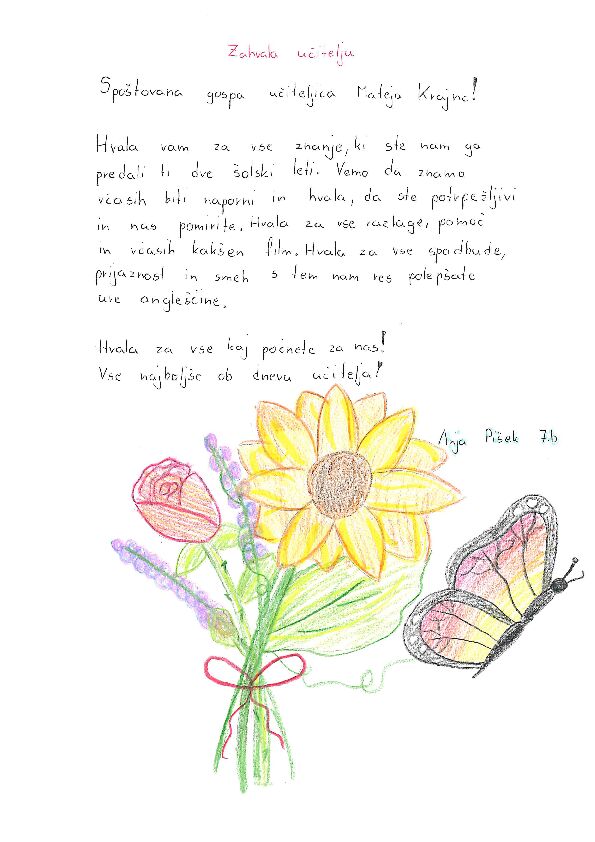 Zahvala učitelju
Spoštovana gospa učiteljica Mateja Krajnc!
Hvala vam za vse znanje, ki ste nam ga
predali ti dve šolski leti. Vemo da znamo
včasih biti naporni in hvala, da ste potrpežljivi
in nas pomirite. Hvala za vse razlage, pomoč
in včasih kakšen film. Hvala za vse spodbude,
prijaznost in smeh s tem nam res polepšate
ure angleščine.
Hvala za vse kaj počnete za nas!
Vse najboljše ob dnevu učitelja!
Anja Pišek 7.b